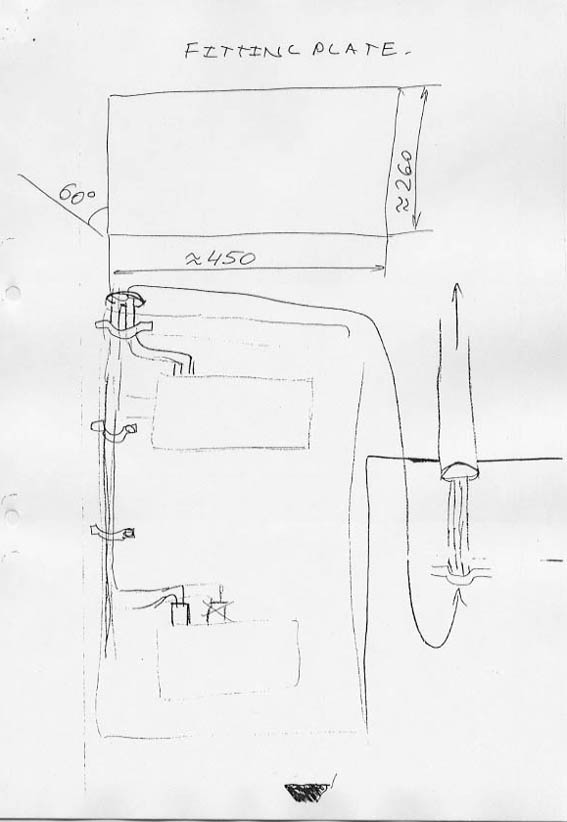 FITTING PLATE.
60°
≈260
≈450